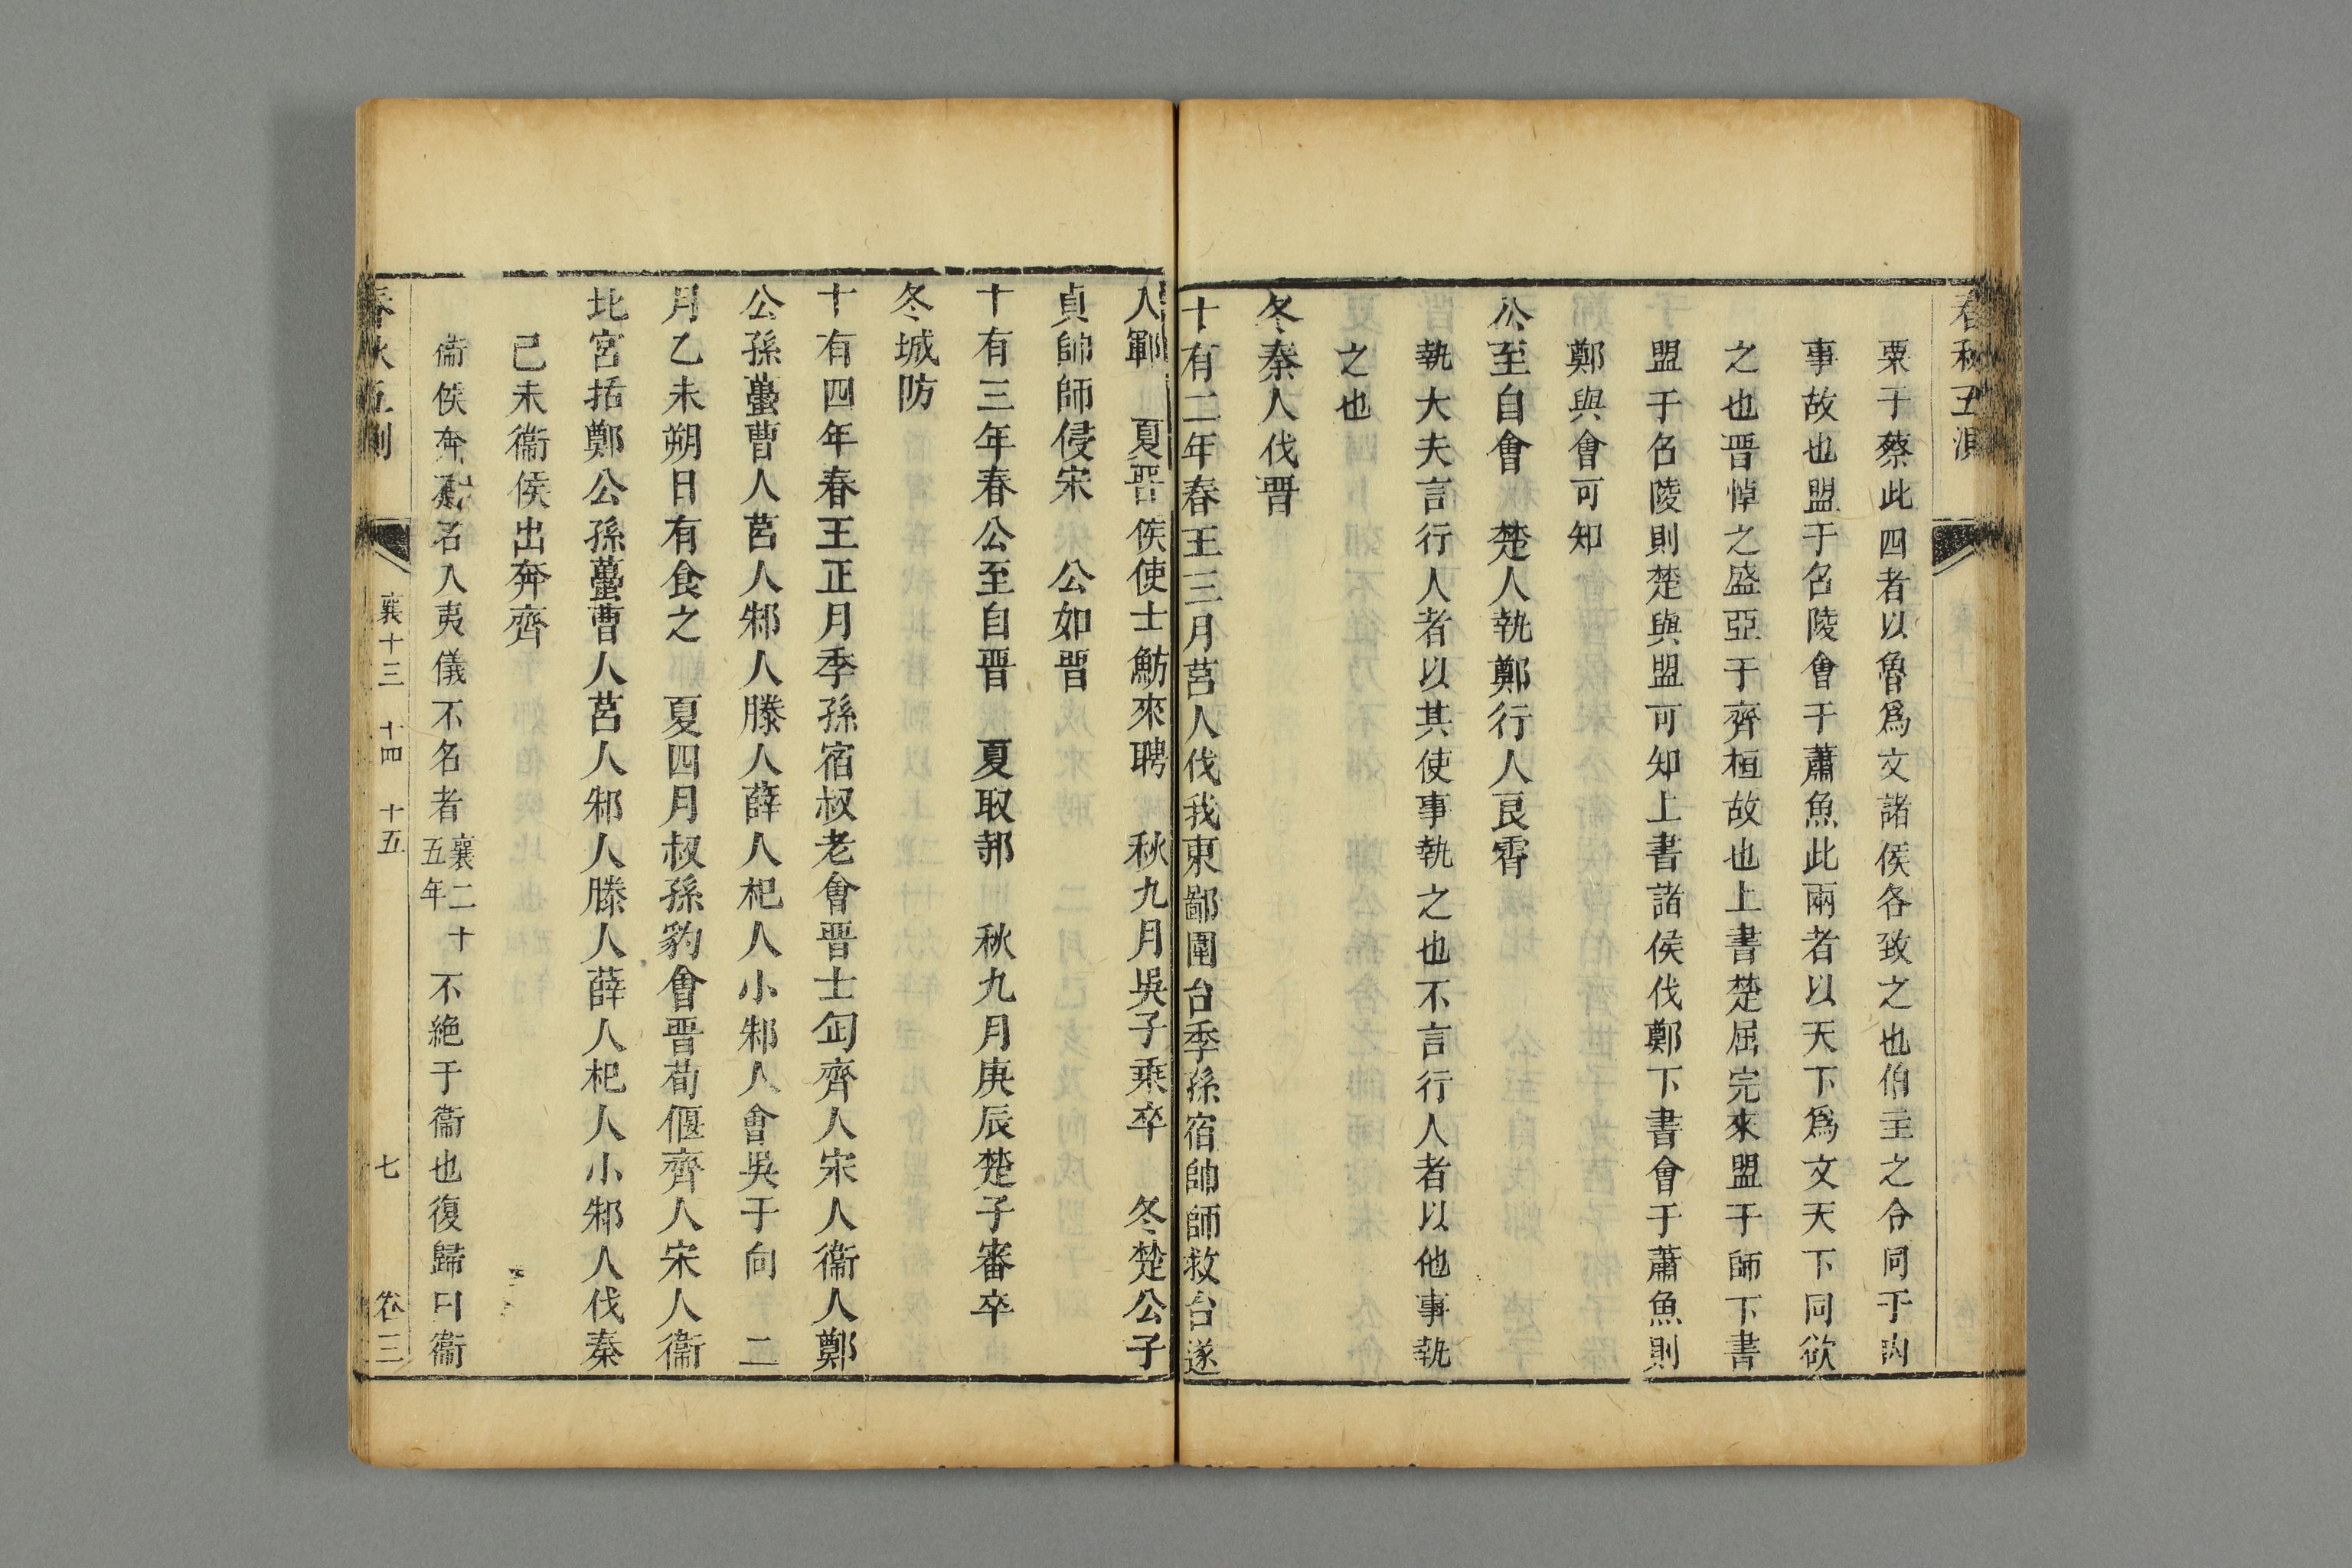 粟于蔡此四者以魯爲文諸侯各致之也伯主之合同于內
事故也盟于召陵會于蕭魚此兩者以天下爲文天下同欲
之也晋悼之盛亞于齊桓故也上書楚屈完來盟于師下書
盟于召陵則楚與盟可知上書諸侯伐鄭下書會于蕭魚則
鄭與會可知
公至自會　楚人執鄭行人良霄
執大夫言行人者以其使事執之也不言行人者以他事執
之也
冬秦人伐晋
十有二年春王三月莒人伐我東鄙圍台季孫宿帥師救台遂
入鄆　夏晋侯使士魴來聘　秋九月吳子乗卒　冬楚公子
貞帥師侵宋　公如晋
十有三年春公至自晋　夏取邿　秋九月庚辰楚子審卒
冬城防
十有四年春王正月季孫宿叔老會晋士匄齊人宋人衞人鄭
公孫蠆曹人莒人邾人滕人薛人杞人小邾人會吳于向　二
月乙未朔日有食之　夏四月叔孫豹會晋荀偃齊人宋人衞
北宮括鄭公孫蠆曹人莒人邾人滕人薛人杞人小邾人伐秦
己未衞侯出奔齊
衞侯奔名入夷儀不名者襄二十五年不絶于衞也復歸曰衞
春秋五測　襄十三　十四　十五　七　卷三